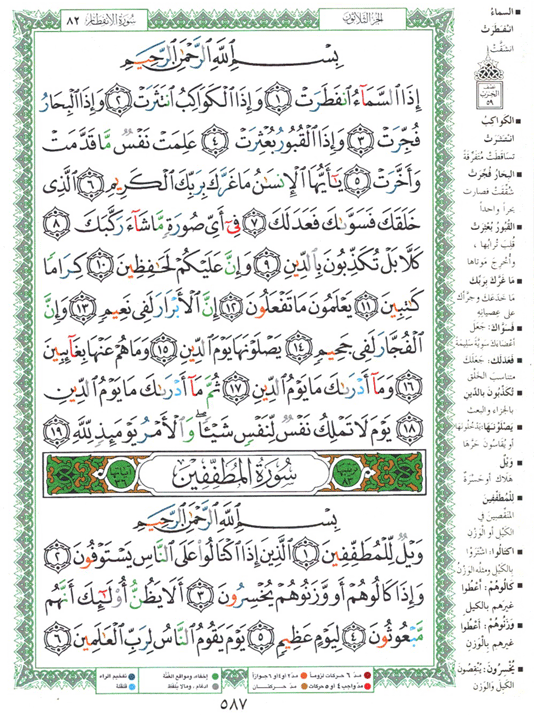 سورة الانفطار ٨٢
الجزء الثلاثون
بِسْمِ اللَّهِ الرَّحْمَٰنِ الرَّحِيمِ
إِذَا السَّمَاءُ انفَطَرَتْ ١ وَإِذَا الْكَوَاكِبُ انتَثَرَتْ ٢ وَإِذَا الْبِحَارُ
فُجِّرَتْ ٣ وَإِذَا الْقُبُورُ بُعْثِرَتْ ٤ عَلِمَتْ نَفْسٌ مَّا قَدَّمَتْ
وَأَخَّرَتْ ٥ يَا أَيُّهَا الْإِنسَانُ مَا غَرَّكَ بِرَبِّكَ الْكَرِيمِ ٦ الَّذِي
خَلَقَكَ فَسَوَّاكَ فَعَدَلَكَ ٧ فِي أَيِّ صُورَةٍ مَّا شَاءَ رَكَّبَكَ ٨
كَلَّا بَلْ تُكَذِّبُونَ بِالدِّينِ ٩ وَإِنَّ عَلَيْكُمْ لَحَافِظِينَ ١٠ كِرَامًا
كَاتِبِينَ ١١ يَعْلَمُونَ مَا تَفْعَلُونَ ١٢ إِنَّ الْأَبْرَارَ لَفِي نَعِيمٍ ١٣ وَإِنَّ
الْفُجَّارَ لَفِي جَحِيمٍ ١٤ يَصْلَوْنَهَا يَوْمَ الدِّينِ ١٥ وَمَا هُمْ عَنْهَا بِغَائِبِينَ
١٦ وَمَا أَدْرَاكَ مَا يَوْمُ الدِّينِ ١٧ ثُمَّ مَا أَدْرَاكَ مَا يَوْمُ الدِّينِ
١٨ يَوْمَ لَا تَمْلِكُ نَفْسٌ لِّنَفْسٍ شَيْئًا وَالْأَمْرُ يَوْمَئِذٍ لِّلَّهِ ١٩
ترتيبها ٨٣ سُورَةُ الْمُطَفِّفِينَ آياتها ٣٦
بِسْمِ اللَّهِ الرَّحْمَٰنِ الرَّحِيمِ
وَيْلٌ لِّلْمُطَفِّفِينَ ١ الَّذِينَ إِذَا اكْتَالُوا عَلَى النَّاسِ يَسْتَوْفُونَ ٢
وَإِذَا كَالُوهُمْ أَو وَّزَنُوهُمْ يُخْسِرُونَ ٣ أَلَا يَظُنُّ أُولَٰئِكَ أَنَّهُم
مَّبْعُوثُونَ ٤ لِيَوْمٍ عَظِيمٍ ٥ يَوْمَ يَقُومُ النَّاسُ لِرَبِّ الْعَالَمِينَ ٦
السماءُ
انفَطَرَتْ
انشقَّتْ
نصف
الحزب
٥٩
الكواكبُ
انتَثَرَتْ
تساقطَتْ متفرِّقة
البحارُ فُجِّرَتْ
شُقِّقَتْ فصارت
بحراً واحداً
القُبُورُ بُعْثِرَتْ
قُلِبَ تُرابُها ،
وأُخْرِجَ مَوتاها
ما غَرَّك بربِّك
ما خدَعَك وجرَّأك
على عِصيانِهِ
فسوَّاك: جَعَلَ
أعضاءَك سويَّةً سليمة
فعَدَلك: جَعَلَك
متناسبَ الخَلْق
تُكَذِّبُونَ بالدِّينِ
بالجزاء والبعث
يَصْلَوْنَها: يَدخُلُونها
أو يُقاسُونَ حَرَّها
وَيْلٌ
هلاك أو حَسْرة
للمُطَفِّفين
المنقِّصين في
الكَيْل أو الوزن
اكتالُوا: اشتَرَوْا
بالكَيْل ومثلُه الوَزْن
كالُوهُمْ: أعْطَوْا
غيرَهم بالكَيل
وزَنُوهُمْ: أعْطَوْا
غيرَهم بالوزن
يُخْسِرُون: يُنقِصُون
الكَيْلَ والوَزْن
مدّ ٦ حركات لزوماً
مدّ ٢ أو ٤ أو ٦ جوازاً
إخفاء، ومواقع الغُنَّة
تفخيم الراء
مدّ واجب ٤ أو ٥ حركات
مدّ حركتان
ادغام ، ومالا يُلفظ
قلقلة
٥٨٧